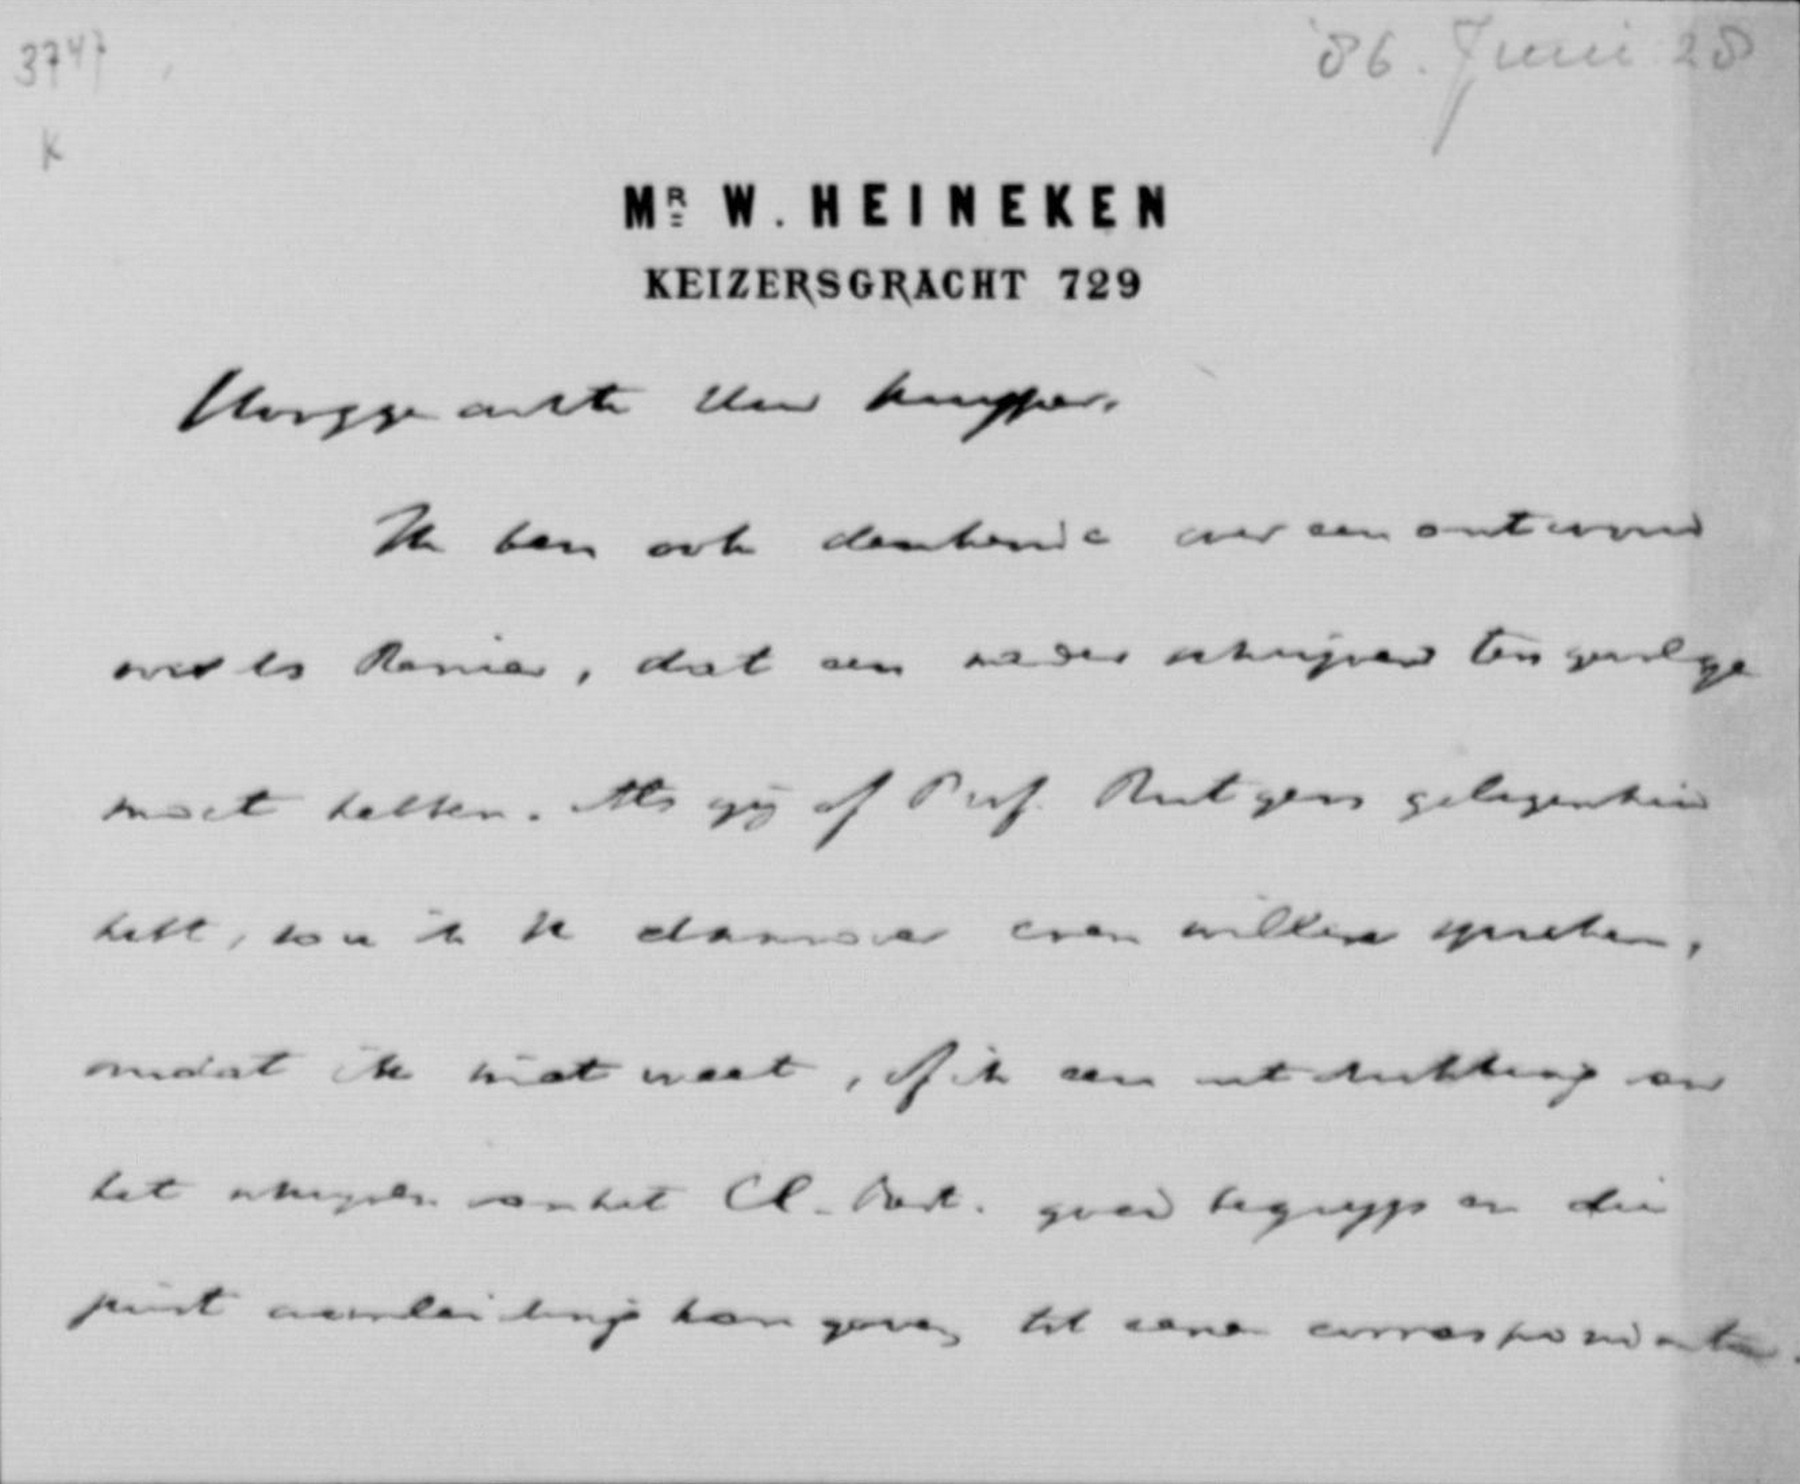 3747
'86. Juni 28
K
MR W. HEINEKEN
KEIZERSGRACHT 729
Hooggeachte Heer Kuyper.
Ik ben ook denkende over een antwoord
, dat een nader schrijven ten gevolge
moet hebben. Als gij of Prof. Rutgers gelegenheid
hebt, zou ik U daarover even willen spreken,
omdat ik niet weet, of ik een uitdrukking en
het schrijven van het Cl. Best. goed begrijp en die
juist aanleiding kan geven tot eene correspondentie.